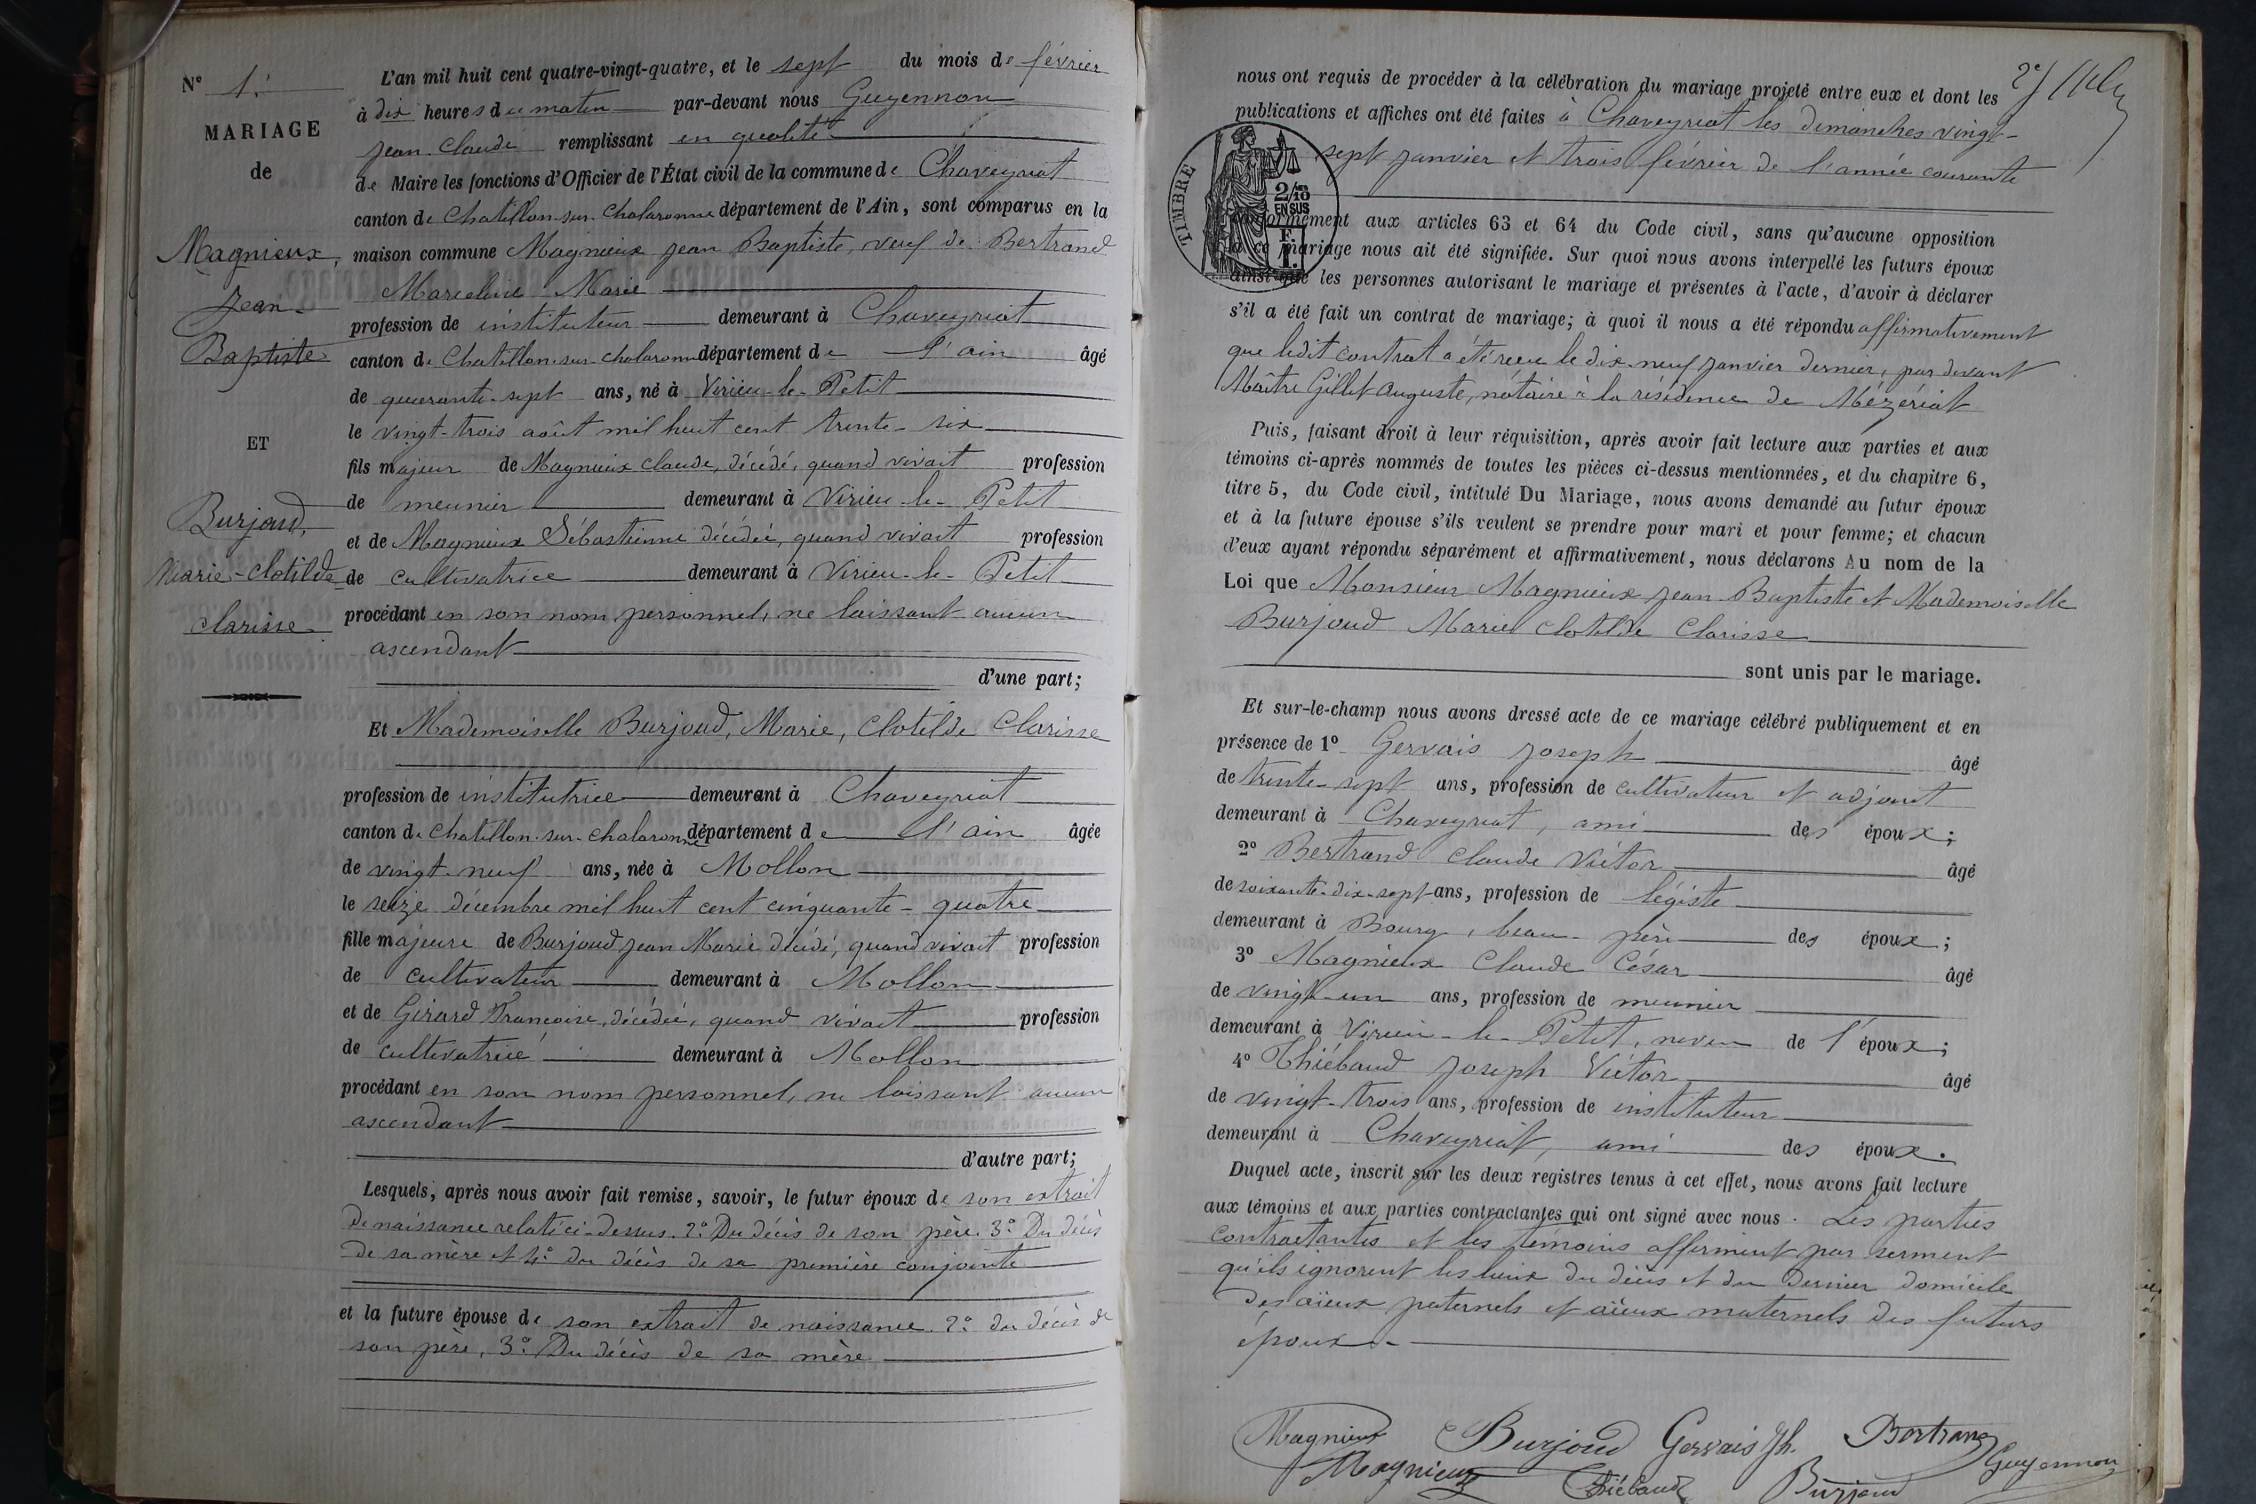 N° 1.
MARIAGE
de
Magnieux,
Jean-
Baptiste
ET
Burjoud,
Marie-Clotilde
Clarisse
L'an mil huit cent quatre-vingt-quatre, et le sept du mois de février
à dix heures du matin par-devant nous Guyennon
Jean Claude remplissant en qualité
de Maire les fonctions d'Officier de l'État civil de la commune de Chaveyriat
canton de Chatillon-sur-Chalaronne département de l'Ain, sont comparus en la
maison commune Magnieux Jean Baptiste, veuf de Bertrand
Marceline Marie
profession de instituteur demeurant à Chaveyriat
canton de Chatillon-sur-chalaronne département de l'ain âgé
de quarante-sept ans, né à Virieu-le-Petit
le vingt-trois août mil huit cent trente-six
fils majeur de Magnieux Claude, décédé, quand vivait profession
de meunier demeurant à Virieu-le-Petit
et de Magnieux Sébastienne décédée, quand vivait profession
de cultivatrice demeurant à Virieu-le-Petit
procédant en son nom personnel, ne laissant aucun
ascendant
d'une part;
Et Mademoiselle Burjoud, Marie, Clotilde Clarisse
profession de institutrice demeurant à Chaveyriat
canton de Chatillon-sur-chalaronne département de l'ain âgée
de vingt-neuf ans, née à Mollon
le seize décembre mil huit cent cinquante-quatre
fille majeure de Burjoud Jean Marie décédé, quand vivait profession
de cultivateur demeurant à Mollon
et de Girard Françoise, décédée, quand vivait profession
de cultivatrice demeurant à Mollon
procédant en son nom personnel, ne laissant aucun
ascendant
d'autre part;
Lesquels, après nous avoir fait remise, savoir, le futur époux de son extrait
de naissance relaté ci-dessus. 2° Du décès de son père. 3° Du décès
de sa mère et 4° du décès de sa première conjointe
et la future épouse de son extrait de naissance. 2° du décès de
son père, 3° Du décès de sa mère
2e
nous ont requis de procéder à la célébration du mariage projeté entre eux et dont les
publications et affiches ont été faites à Chaveyriat les dimanches vingt-
sept janvier et trois février de l'année courante
TIMBRE
2/10
EN SUS
1 F.
conformément aux articles 63 et 64 du Code civil, sans qu'aucune opposition
à ce mariage nous ait été signifiée. Sur quoi nous avons interpellé les futurs époux
ainsi que les personnes autorisant le mariage et présentes à l'acte, d'avoir à déclarer
s'il a été fait un contrat de mariage; à quoi il nous a été répondu affirmativement
que ledit contrat a été reçu le dix-neuf janvier dernier, par devant
Maître Gillet Auguste, notaire à la résidence de Mézériat
Puis, faisant droit à leur réquisition, après avoir fait lecture aux parties et aux
témoins ci-après nommés de toutes les pièces ci-dessus mentionnées, et du chapitre 6,
titre 5, du Code civil, intitulé Du Mariage, nous avons demandé au futur époux
et à la future épouse s'ils veulent se prendre pour mari et pour femme; et chacun
d'eux ayant répondu séparément et affirmativement, nous déclarons Au nom de la
Loi que Monsieur Magnieux Jean-Baptiste et Mademoiselle
Burjoud Marie Clotilde Clarisse
sont unis par le mariage.
Et sur-le-champ nous avons dressé acte de ce mariage célébré publiquement et en
présence de 1° Gervais Joseph âgé
de trente-sept ans, profession de cultivateur et adjoint
demeurant à Chaveyriat, ami des époux;
2° Bertrand Claude Victor âgé
de soixante-dix-sept ans, profession de légiste
demeurant à Bourg, beau-père des époux;
3° Magnieux Claude César âgé
de vingt-un ans, profession de meunier
demeurant à Virieu-le-Petit, neveu de l'époux;
4° Thiébaud Joseph Victor âgé
de vingt-trois ans, profession de instituteur
demeurant à Chaveyriat, ami des époux.
Duquel acte, inscrit sur les deux registres tenus à cet effet, nous avons fait lecture
aux témoins et aux parties contractantes qui ont signé avec nous. Les parties
contractantes et les témoins affirment par serment
qu'ils ignorent les lieux du décès et du dernier domicile
des aïeux paternels et aïeux maternels des futurs
époux.
Magnieux Burjoud Gervais Jh. Bertrand
Magnieux Thiébaud Burjoud Guyennon